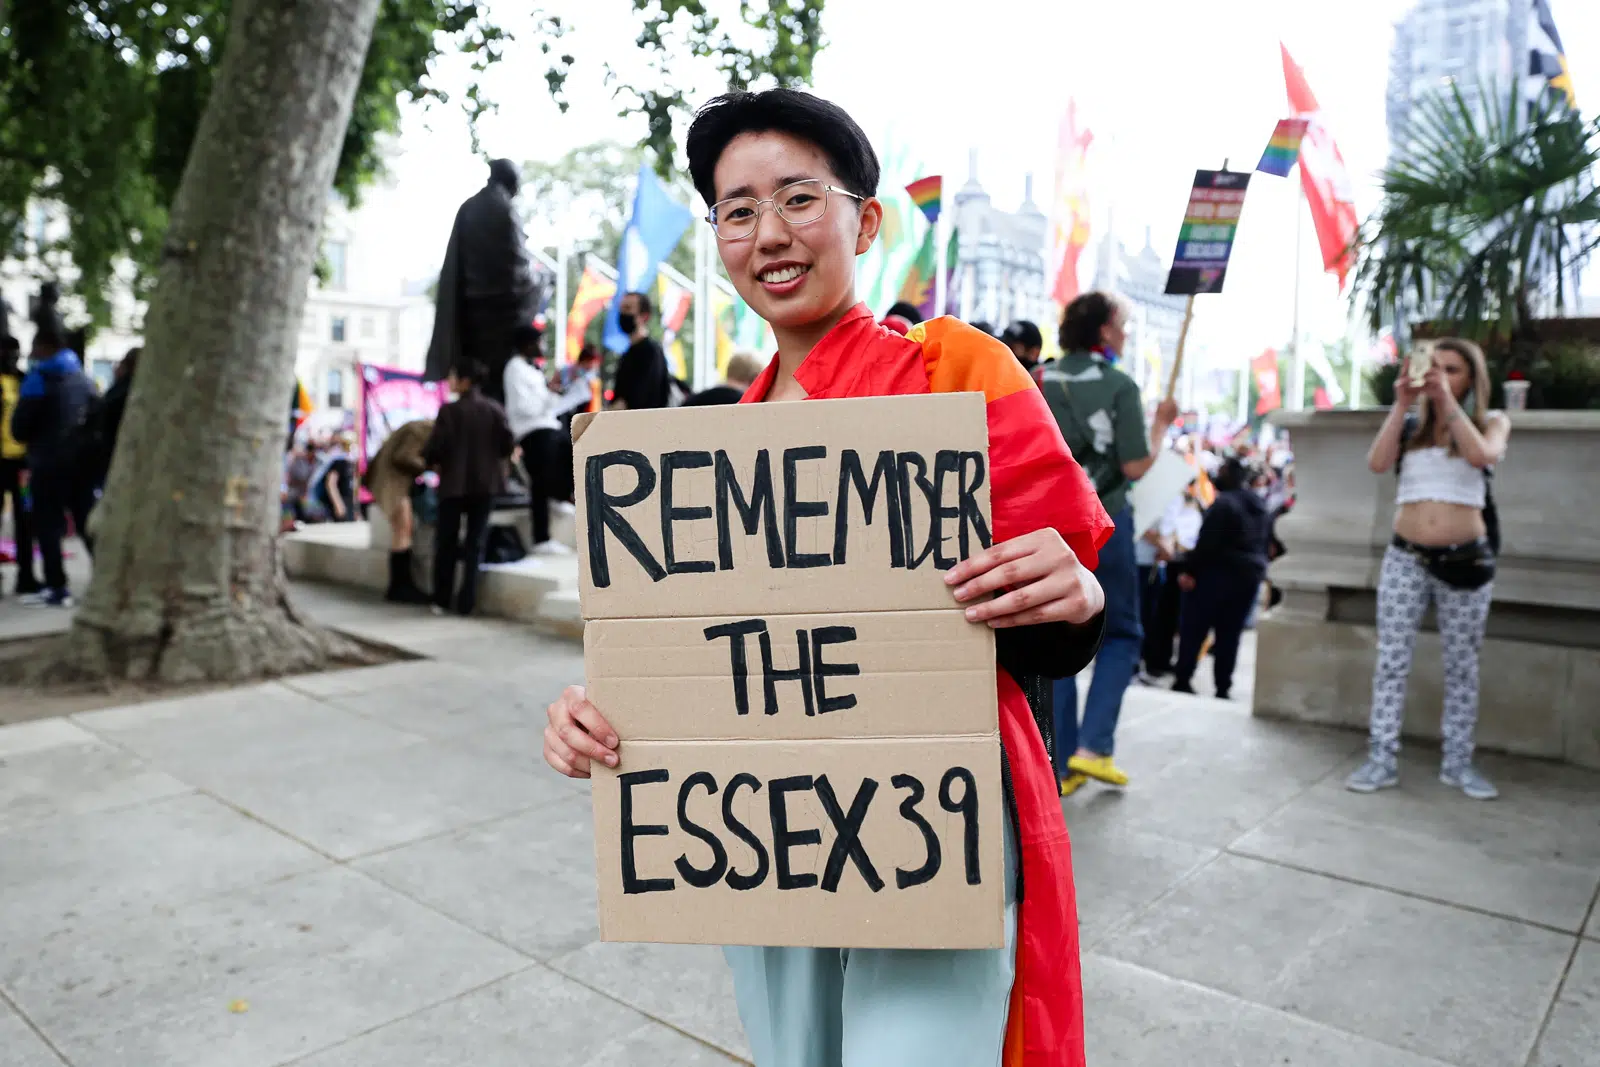 REMEMBER
THE
ESSEX 39